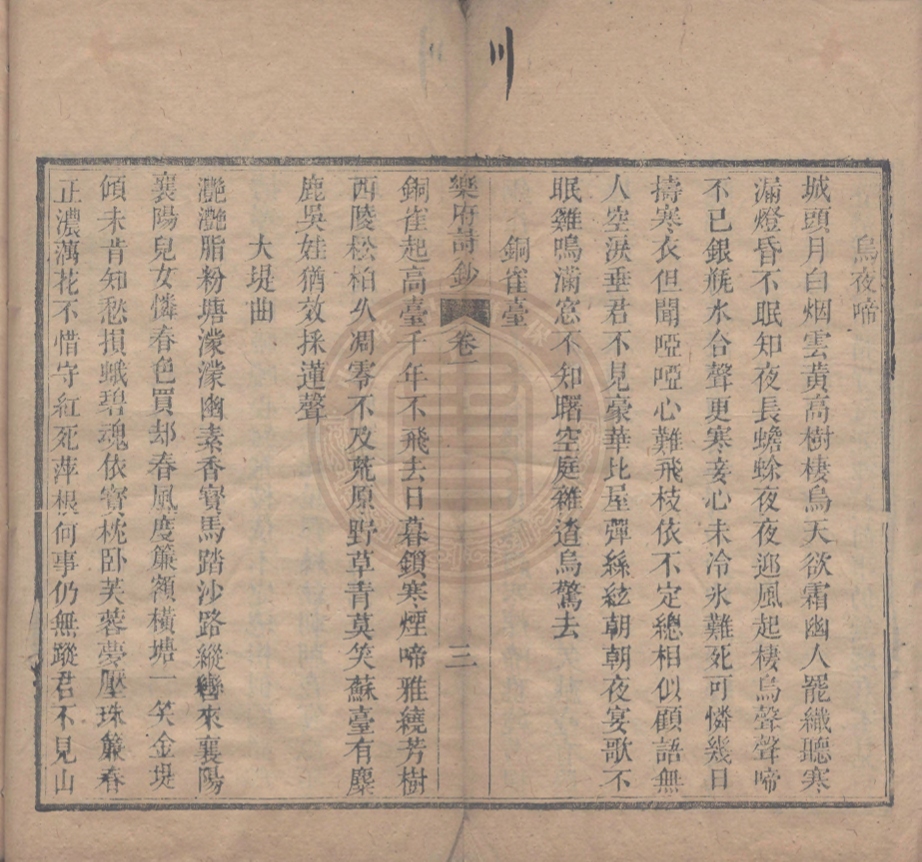 烏夜啼
城頭月白烟雲黃高樹棲烏天欲霜幽人罷織聽寒
漏燈昏不眠知夜長蟾蜍夜夜迎風起棲烏聲聲啼
不已銀甁水合聲更寒妾心未冷氷難死可憐幾日
擣寒衣但聞啞啞心難飛枝依不定總相似顧語無
人空淚垂君不見豪華比屋彈絲絃朝朝夜宴歌不
眠雞鳴滿窓不知曙空庭雜遝烏驚去
銅雀臺
樂府詩鈔 卷一 三
銅雀起高臺千年不飛去日暮鎖寒煙啼雅繞芳樹
西陵松柏乆凋零不及荒原野草青莫笑蘇臺有麋
鹿吳娃猶效採蓮聲
大堤曲
灔灔脂粉塘濛濛幽素香寶馬踏沙路縱轡來襄陽
襄陽兒女憐春色買却春風度簾額橫塘一笑金堤
傾未肯知愁損蛾碧魂依寶枕卧芙蓉夢壓珠簾春
正濃蕩花不惜守紅死萍根何事仍無蹤君不見山